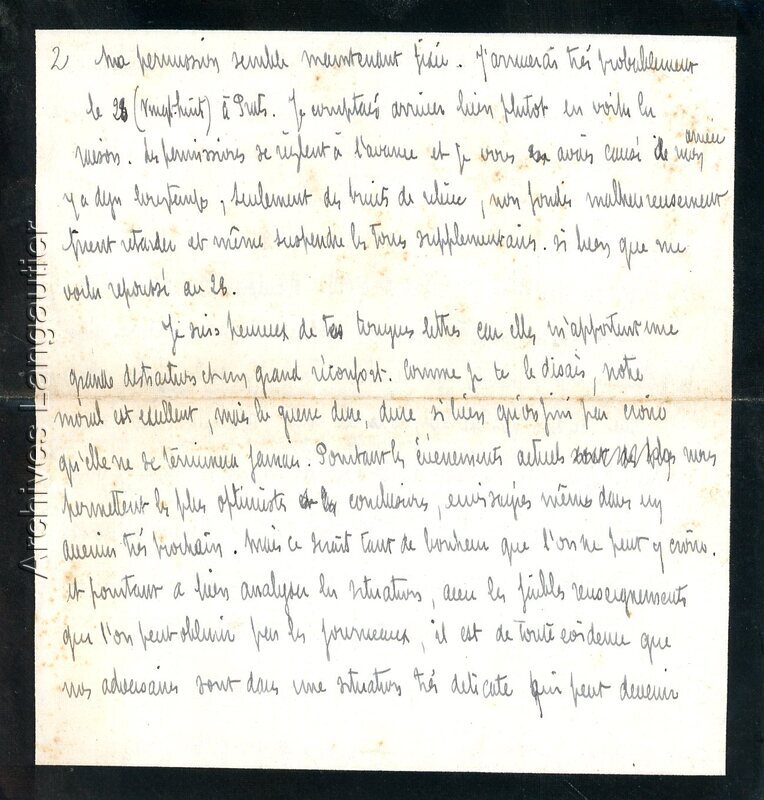 2 Ma permission semble maintenant fixée. J'arriverais très probablement
le 28 (vingt-huit) à Prats. Je comptais arriver bien plutot en voila la
raison. Les permissions se règlent à l'avance et je vous avais causé de mon arrivée
y a deja longtemps, seulement des bruits de relève, non fondés malheureusement
firent retarder et même suspendre les tours supplementaires. si bien que me
voila repoussé au 28.
Je suis heureux de tes longues lettres car elles m'apportent une
grande distraction et un grand réconfort. Comme je te le disais, notre
moral est exellent, mais la guerre dure, dure si bien qu'on fini par croire
qu'elle ne se terminera jamais. Pourtant les évènements actuels nous
permettent les plus optimistes conclusions, envisagées même dans un
avenir très prochain. Mais ce serait tant de bonheur que l'on ne peut y croire.
et pourtant a bien analyser la situation, avec les faibles renseignements
que l'on peut obtenir par les journeaux, il est de toute évidence que
nos adversaires sont dans une situation très delicate qui peut devenir
Archives Langautier